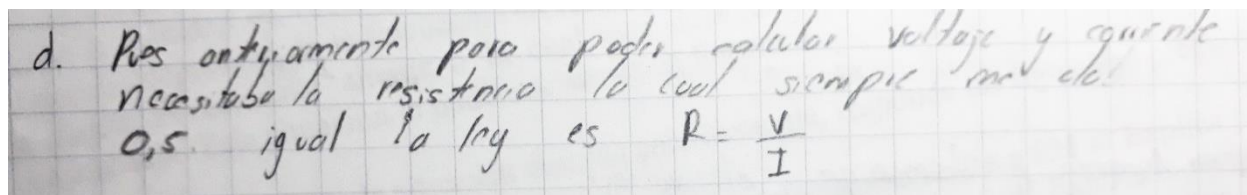 d. Pues anteriormente para poder calcular voltaje y corriente
necesitaba la resistencia la cual siempre me da
0,5. igual la ley es R = V/I